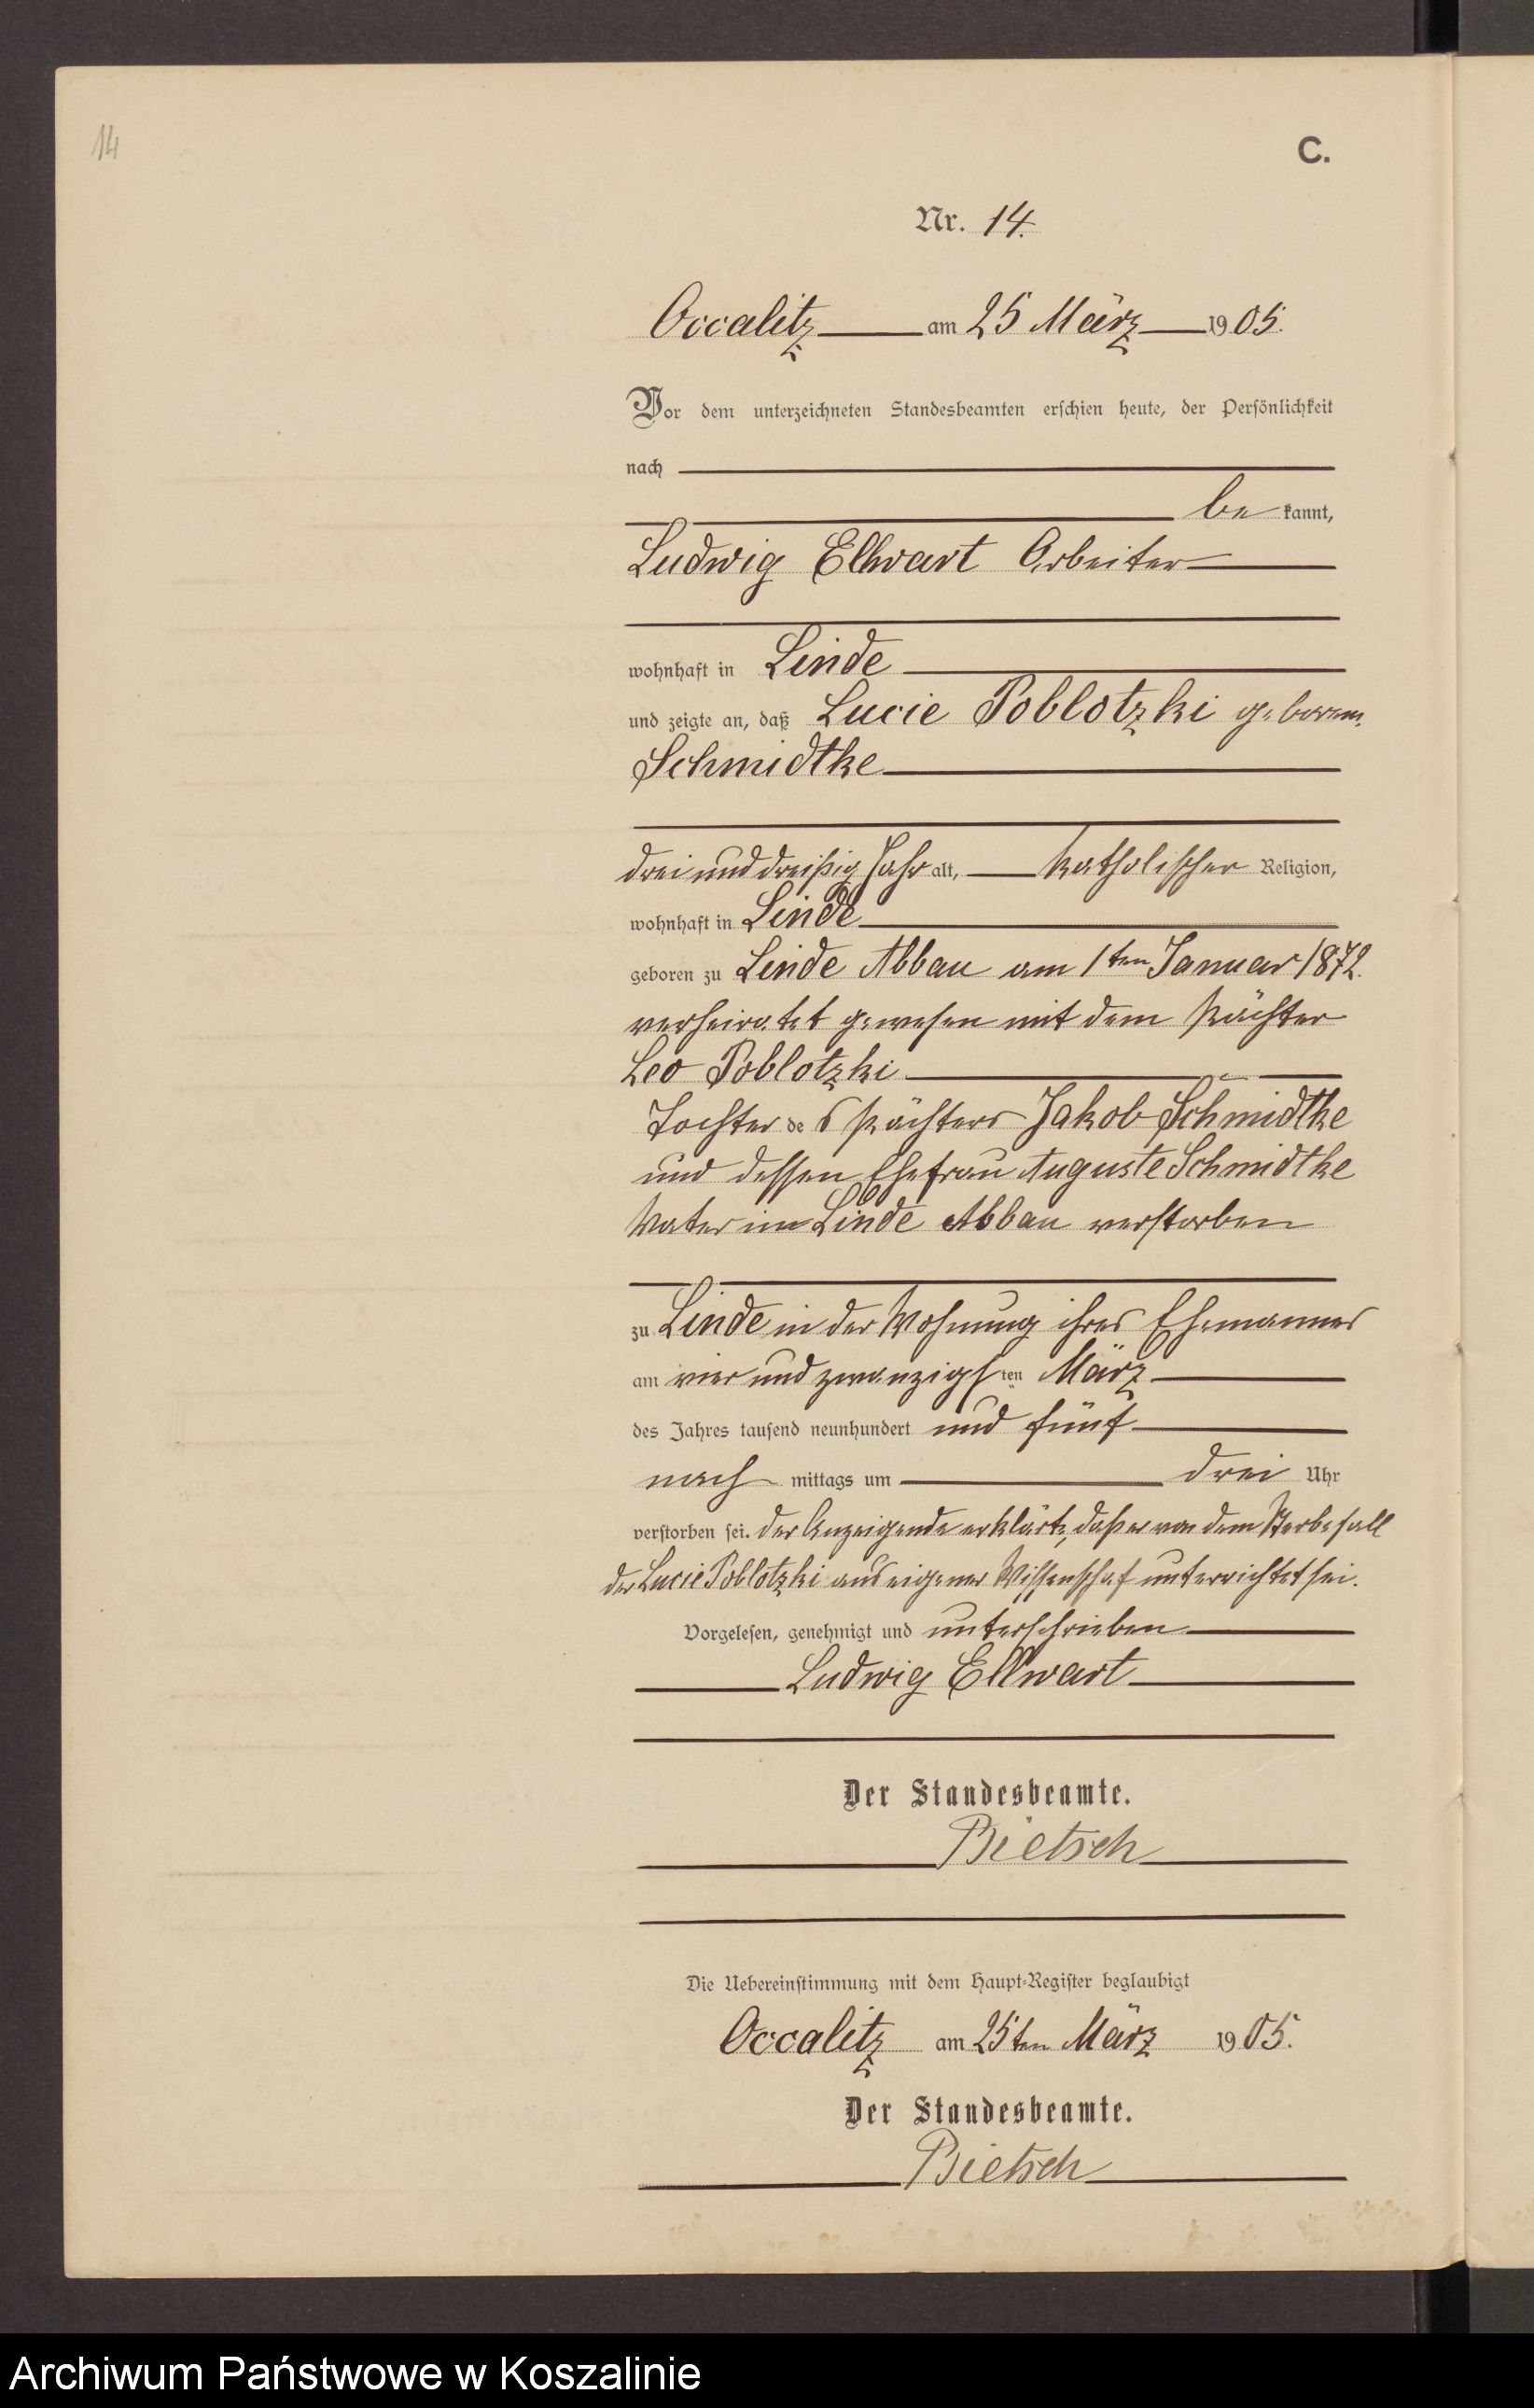 14
C.
Nr. 14.
Occalitz am 25 März 1905.
Vor dem unterzeichneten Standesbeamten erschien heute, der Persönlichkeit
nach
be kannt,
Ludwig Ellwart Arbeiter
wohnhaft in Linde
und zeigte an, daß Lucie Poblotzki geboren.
Schmidtke
drei und dreißig Jahr alt, katholischer Religion,
wohnhaft in Linde
geboren zu Linde Abbau am 1ten Januar 1872.
verheiratet gewesen mit dem Pächter
Leo Poblotzki
Tochter des Pächters Jakob Schmidtke
und dessen Ehefrau Auguste Schmidtke
Vater in Linde Abbau verstorben
zu Linde in der Wohnung ihres Ehemannes
am vier und zwanzigsten März
des Jahres tausend neunhundert und fünf
nach mittags um drei Uhr
verstorben sei. Der Anzeigende erklärte, daß er von dem Sterbefall
der Lucie Poblotzki aus eigener Wissenschaf unterrichtet sei.
Vorgelesen, genehmigt und unterschrieben
Ludwig Ellwart
Der Standesbeamte.
Bietsch
Die Uebereinstimmung mit dem Haupt-Register beglaubigt
Occalitz am 25ten März 1905.
Der Standesbeamte.
Bietsch
Archiwum Państwowe w Koszalinie